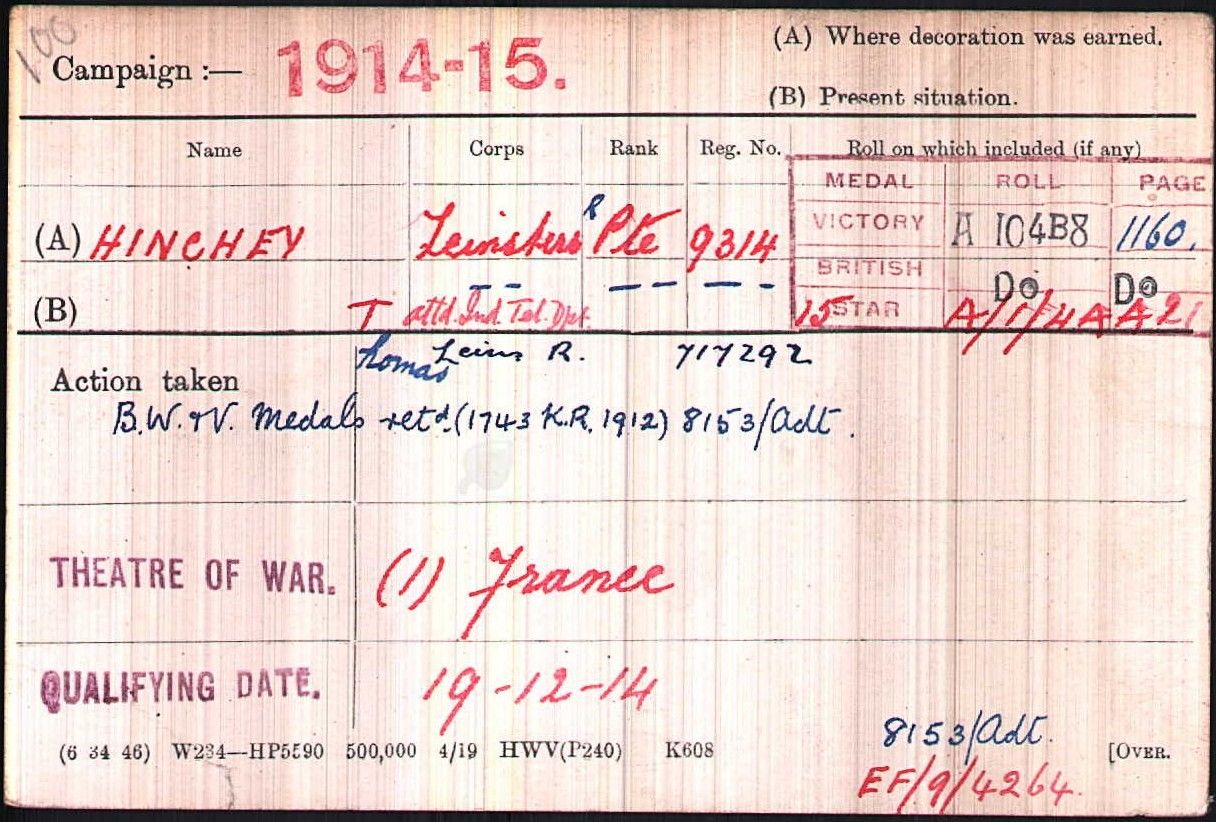 100
Campaign :— 1914-15. (A) Where decoration was earned.
(B) Present situation.
Name Corps Rank Reg. No. Roll on which included (if any)
MEDAL ROLL PAGE
(A) HINCHEY Leinsters R Pte 9314 VICTORY A 104B8 1160.
BRITISH Do Do
(B) T attd. Ind. Tel. Dpt. 15 STAR A/1/4A A21
homas Leins R. 717292
Action taken
B.W. & V. Medals retd. (1743 K.R. 1912) 8153/Adt.
THEATRE OF WAR. (1) France
QUALIFYING DATE. 19-12-14
8153/Adt.
(6 34 46) W234—HP5590 500,000 4/19 HWV(P240) K608 [OVER.
EF/9/4264.